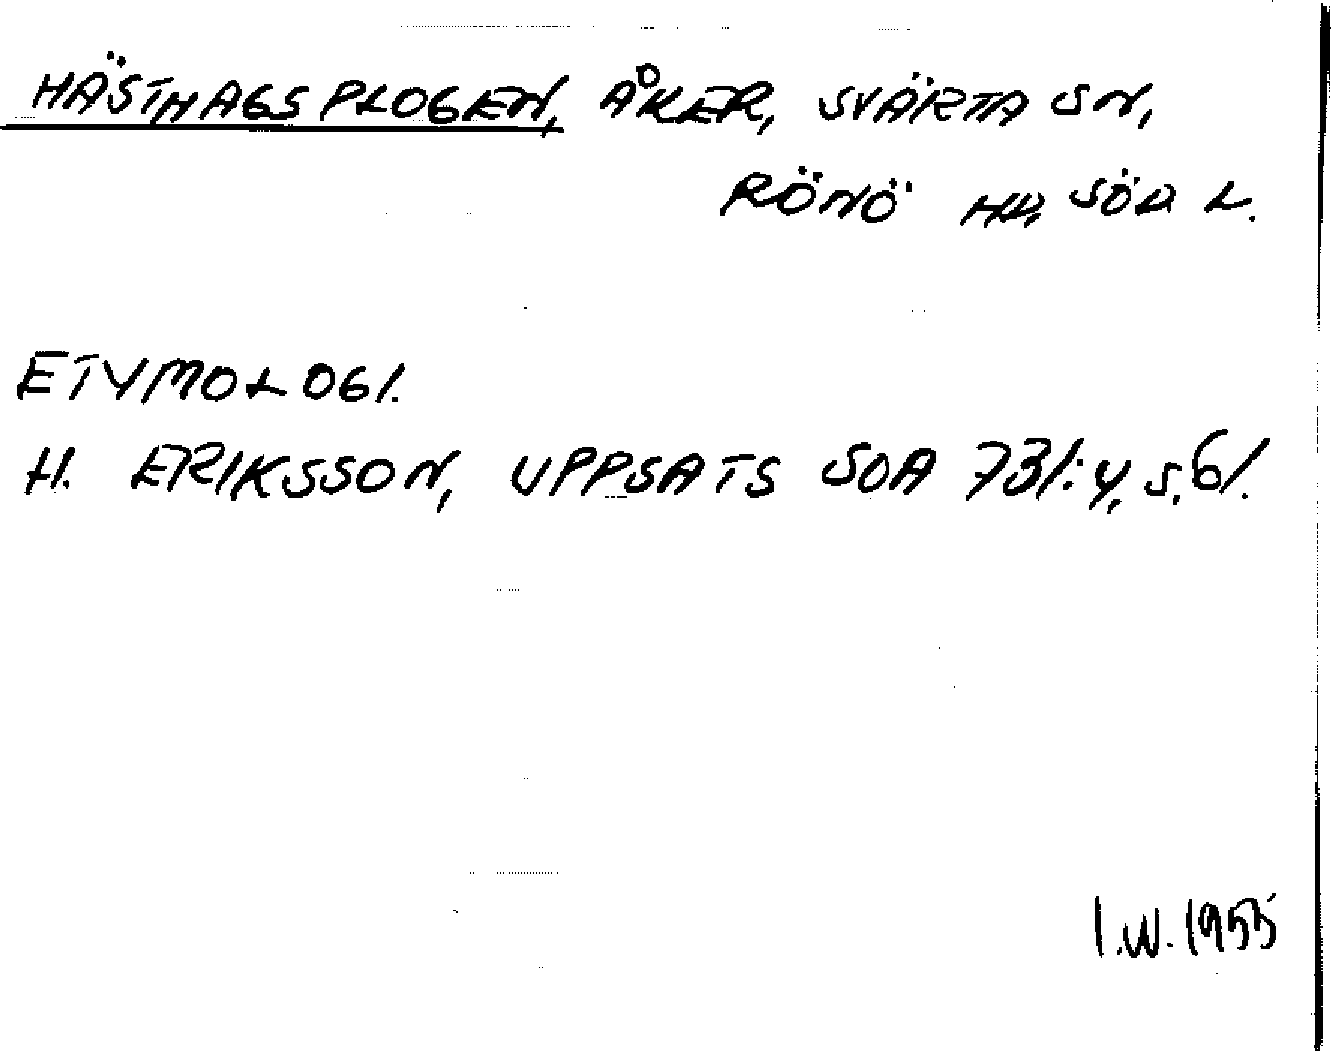 HÄSTHAGSPLOGEN, ÅKER, SVÄRTA SN,
RÖNÖ HD, SÖD L.
ETYMOLOGI.
H. ERIKSSON, UPPSATS SOA 731:4, s. 61.
I.W. 1955